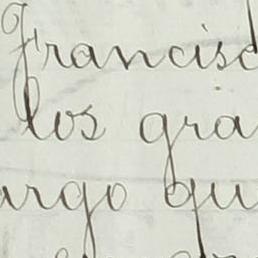 Francisc
los gra
argo qu